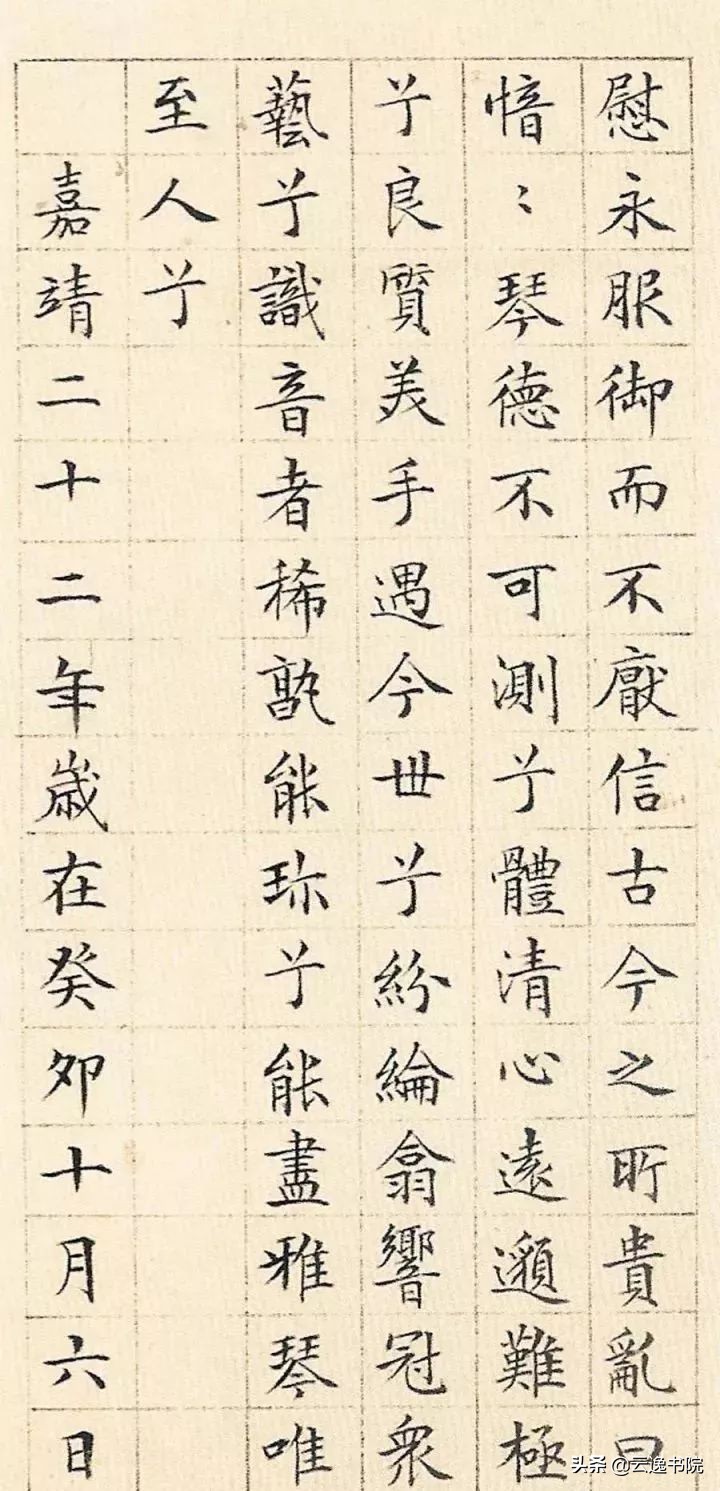 慰永服御而不厭信古今之所貴亂曰
愔〻琴德不可測兮體清心遠邈難極
兮良質美手遇今世兮紛綸翕響冠眾
藝兮識音者稀孰能珍兮能盡雅琴唯
至人兮
嘉靖二十二年歲在癸卯十月六日
头条 @云逸书院